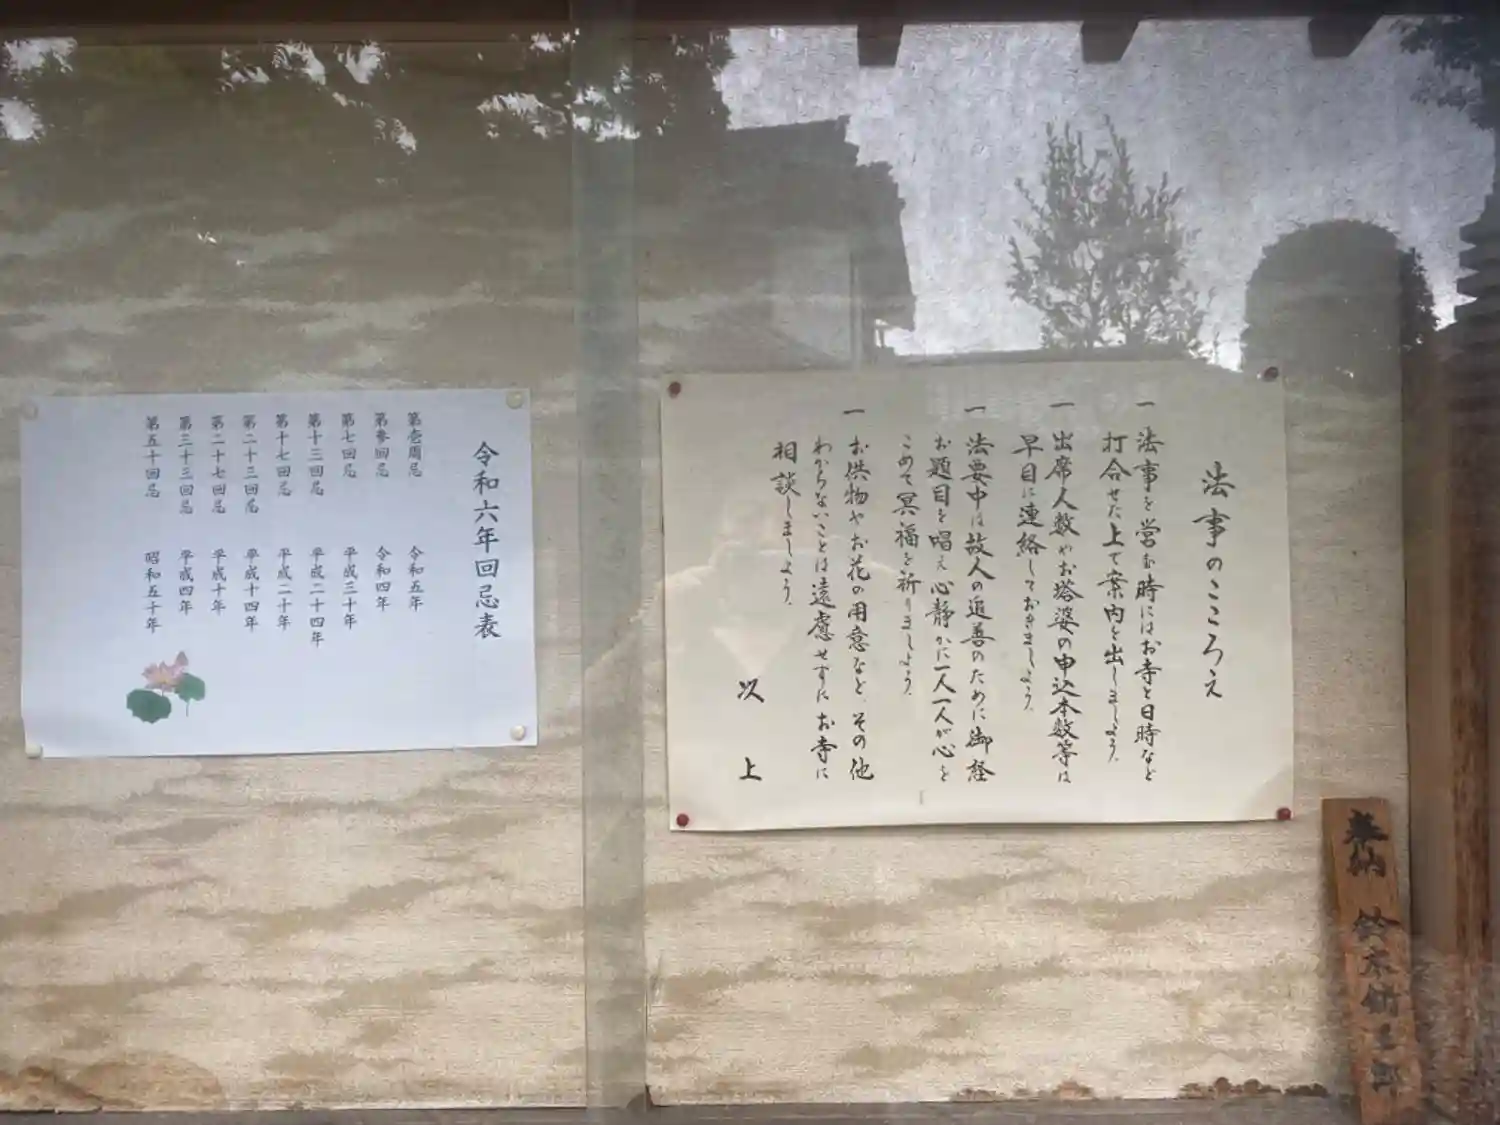 法事のこころえ
一 法事を営む時にはお寺と日時など
打合せた上で案内を出しましょう。
一 出席人数やお塔婆の申込本数等は
早目に連絡しておきましょう。
一 法要中は故人の追善のために御経
お題目を唱え心静かに一人一人が心を
こめて冥福を祈りましょう。
一 お供物やお花の用意など、その他
わからないことは遠慮せずにお寺に
相談しましょう。
以上
令和六年回忌表
第壱周忌 令和五年
第参回忌 令和四年
第七回忌 平成三十年
第十三回忌 平成二十四年
第十七回忌 平成二十年
第二十三回忌 平成十四年
第二十七回忌 平成十年
第三十三回忌 平成四年
第五十回忌 昭和五十年
奉納 鈴木